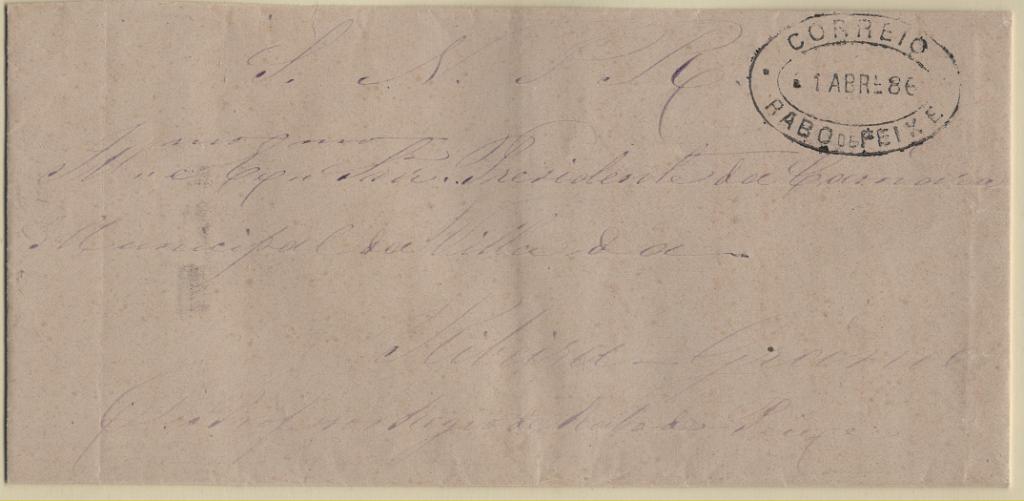 CORREIO
1 ABRL 86
RABO DE PEIXE
S. N. P. R.
mo mo
Presidente da Camara
Municipal da Villa da
Ribeira Grande
de Rabo de Peixe